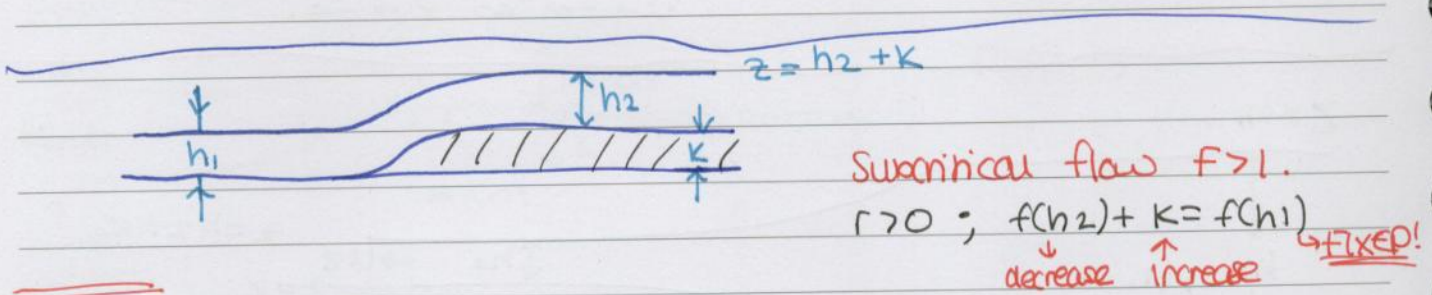 z = h2 + K
h2
h1
K
Supercritical flow F>1.
r>0 ; f(h2) + K = f(h1)
↓ decrease ↑ increase ↳ FIXED!